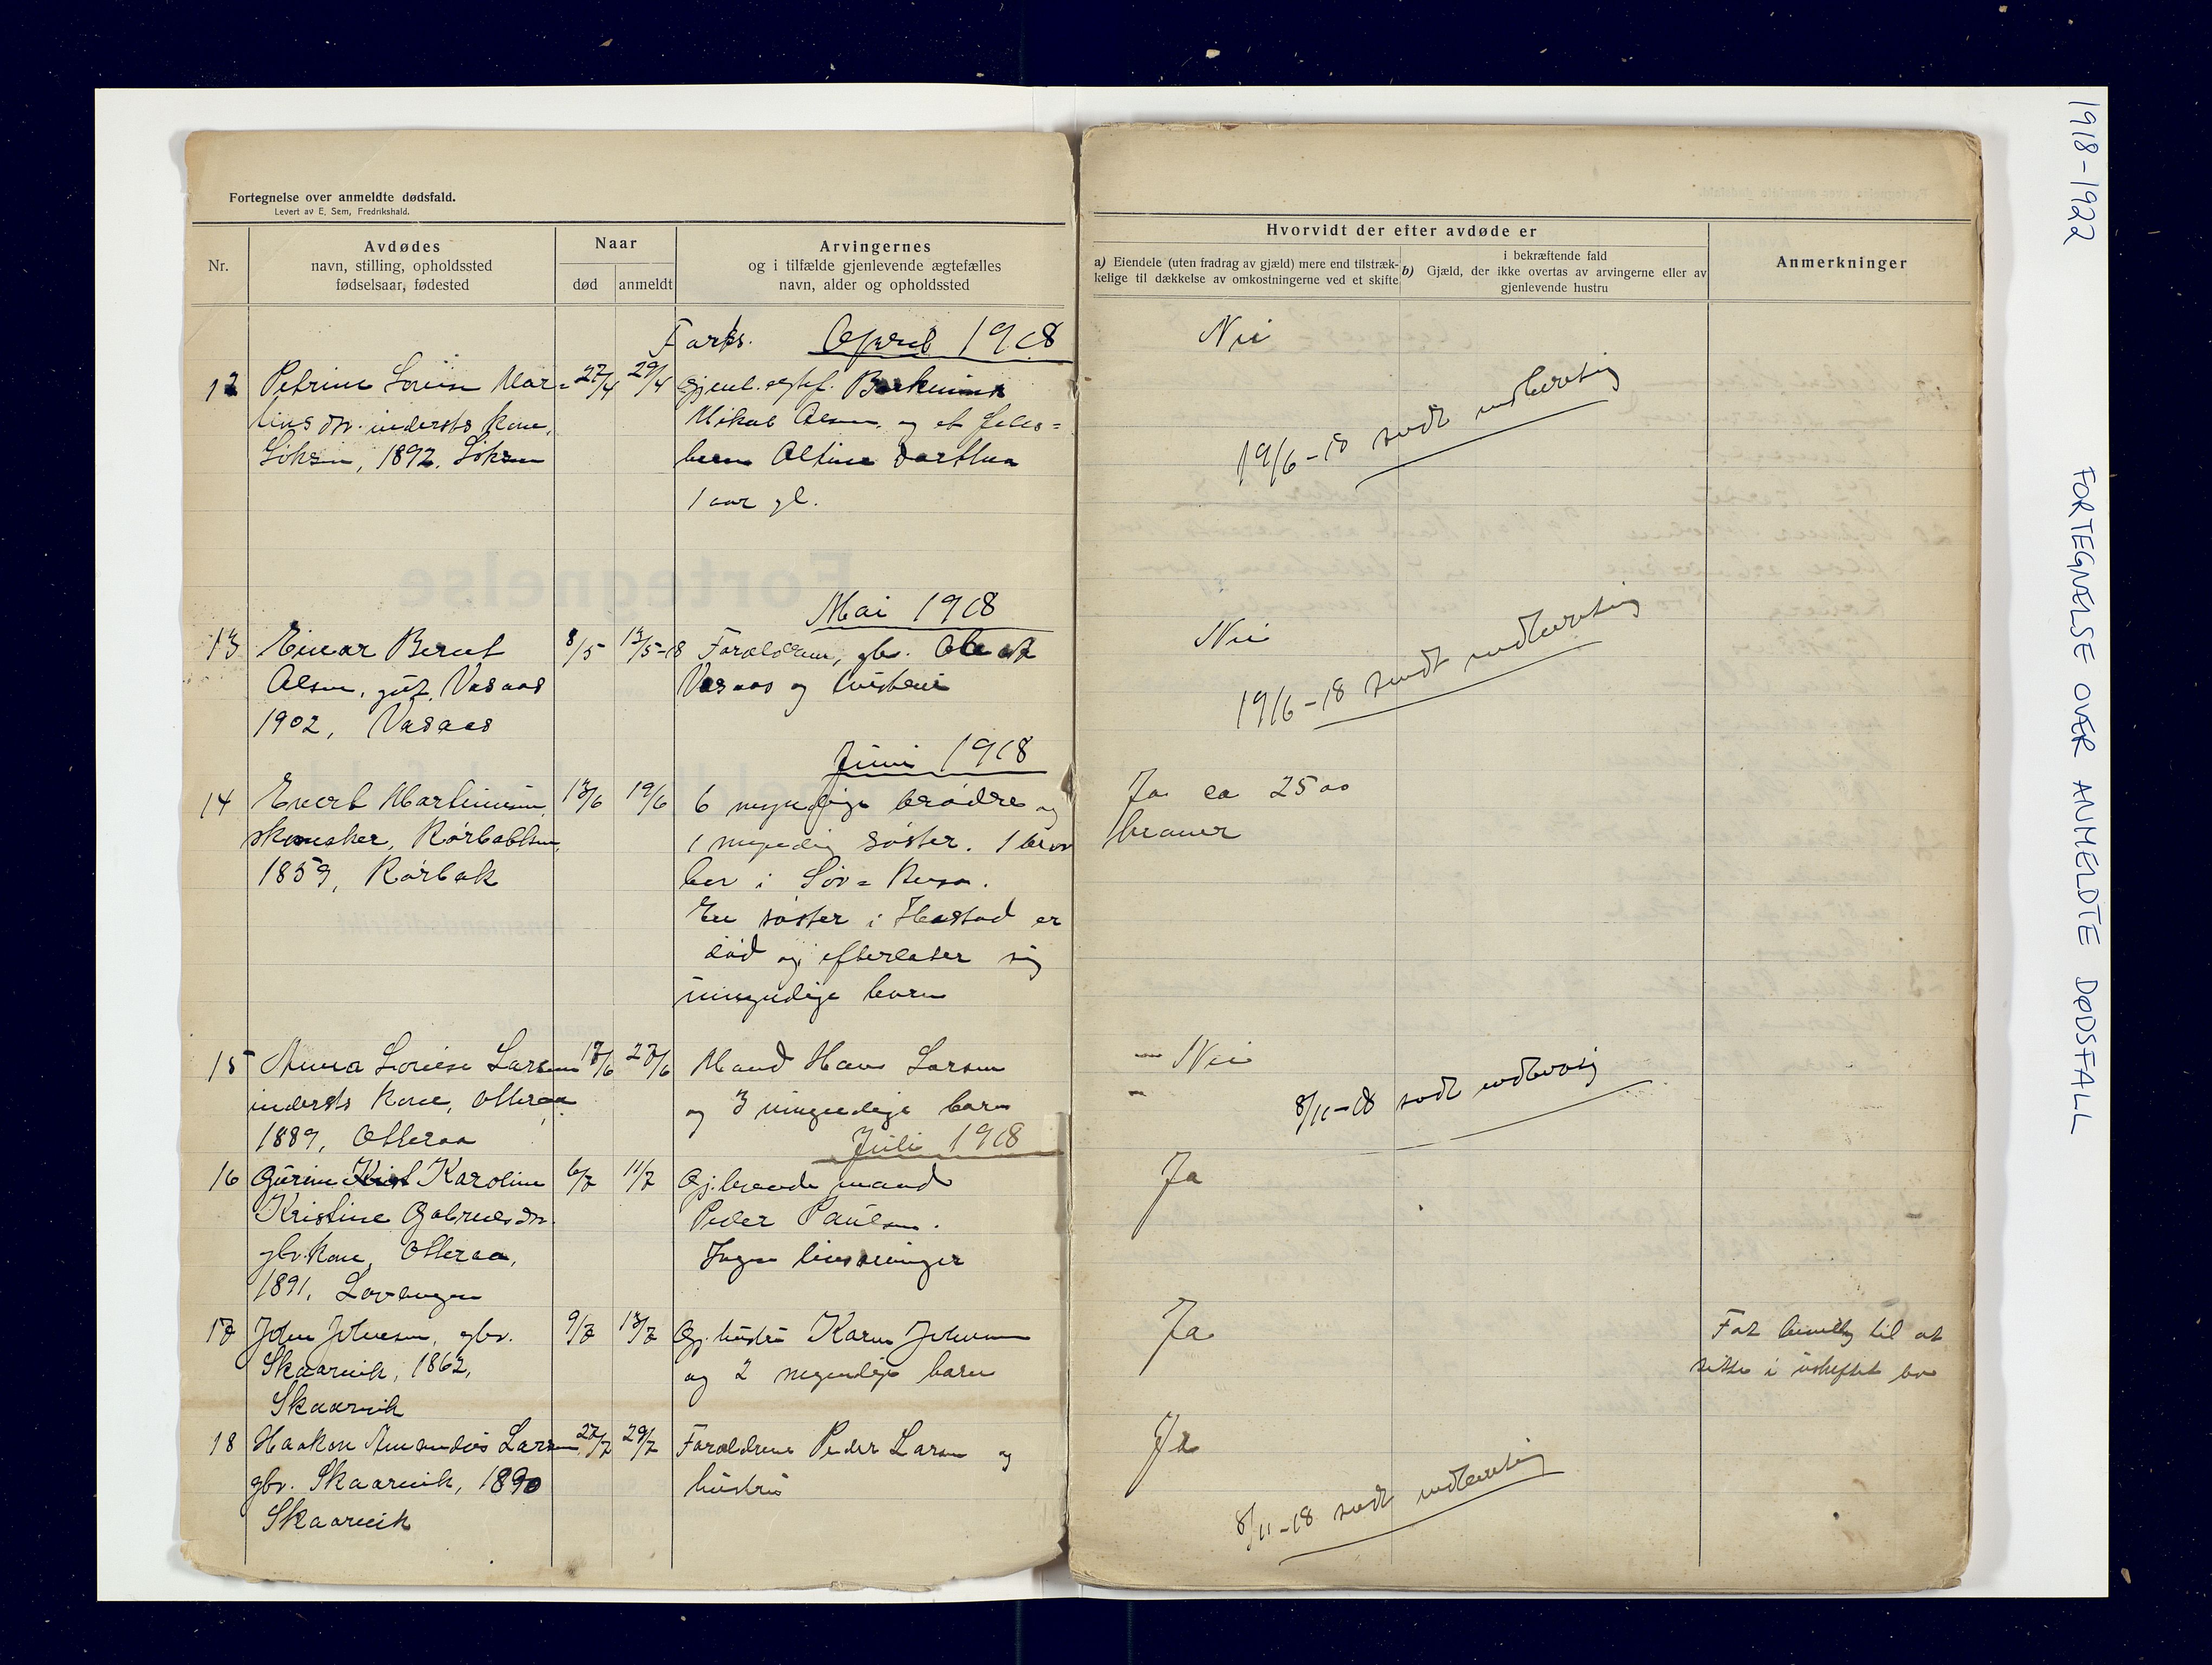 Fortegnelse over anmeldte dødsfald.
Levert av E. Sem, Fredrikshald.
Nr.
Avdødes
navn, stilling, opholdssted
fødselsaar, fødested
Naar
død
anmeldt
Arvingernes
og i tilfælde gjenlevende ægtefælles
navn, alder og opholdssted
Forts. April 1918
12 Petrine Lovise Mar= 27/4 29/4 Gjenl. egtef.
tins dtr. indersts kone, Mikal Olsen, og et felles=
1892. barn Altine Dorthea
1 aar gl.
Mai 1918
13 Einar Bernt 8/5 13/5-18 Forældrene, gbr.
Olsen, gut, Vasaas Vasaas og hustru
1902, Vasaas
Juni 1918
14 Evert Martinusen, 13/6 19/6 6 myndige brødre og
skomaker, 1 myndig søster. 1 bror
1859, Rørbak bor i
En søster i Harstad er
død og efterlater sig
umyndige barn
15 Anna Lovise Larsen 17/6 27/6 Mand Hans Larsen
indersts kone, Otteraa og 3 umyndige barn
1889, Otteraa
Juli 1918
16 Gurine Karoline 6/7 11/7 Gj.levende mand
Kristine Gabrielsdtr. Peder Paulsen.
gbr.kone, Otteraa, Ingen livsarvinger
1891, Lavangen
17 John Johnsen, gbr. 9/7 13/7 Gj. hustru Karen Johnsen
Skaarvik, 1862, og 2 myndige barn
Skaarvik
18 Haakon Amandus Larsen 27/7 29/7 Forældrene Peder Larsen og
gbr. Skaarvik, 1890 hustru
Skaarvik
Hvorvidt der efter avdøde er
a) Eiendele (uten fradrag av gjæld) mere end tilstræk-
kelige til dækkelse av omkostningerne ved et skifte
i bekræftende fald
b) Gjæld, der ikke overtas av arvingerne eller av
gjenlevende hustru
Anmerkninger
Nei
19/6-18 sendt indberetnig
Nei
19/6-18 sendt indberetnig
Ja ca 2500
kroner
Nei
8/11-18 sendt indberetnig
Ja
Ja
Fat bevilling til at
sitte i uskiftet bo
Ja
8/11-18 sendt indberetnig
1918-1922 FORTEGNELSE OVER ANMELDTE DØDSFALL